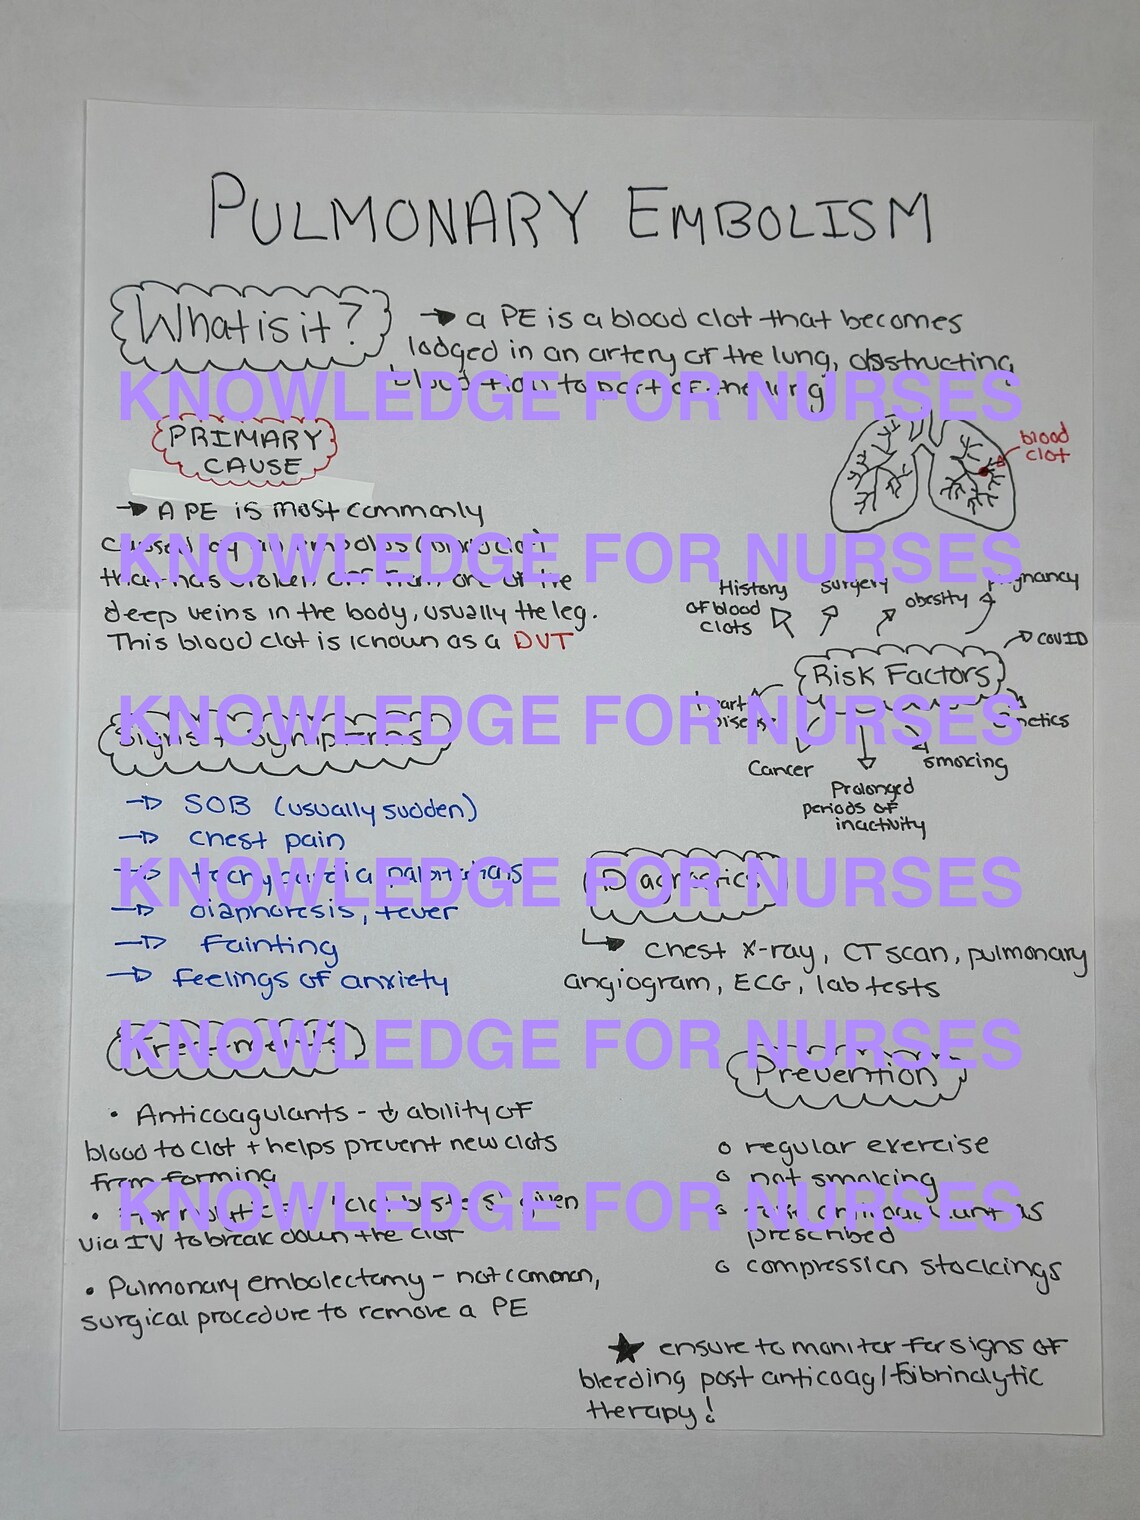 PULMONARY EMBOLISM
What is it?
→ a PE is a blood clot that becomes
lodged in an artery of the lung, obstructing
blood flow to part of the lung
KNOWLEDGE FOR NURSES
PRIMARY
CAUSE
blood
clot
→ A PE is most commonly
caused by an embolus (blood clot)
KNOWLEDGE FOR NURSES
that has broken off from one of the
deep veins in the body, usually the leg.
This blood clot is known as a DVT
History
of blood
clots
surgery
obesity
pregnancy
COVID
Risk Factors
heart
disease
genetics
Cancer
Prolonged
periods of
inactivity
smoking
KNOWLEDGE FOR NURSES
Signs + Symptoms
→ SOB (usually sudden)
→ chest pain
→ tachycardia, palpitations
KNOWLEDGE FOR NURSES
→ diaphoresis, fever
→ Fainting
→ feelings of anxiety
Diagnostics
→ chest x-ray, CT scan, pulmonary
angiogram, ECG, lab tests
KNOWLEDGE FOR NURSES
Treatments
• Anticoagulants - ↓ ability of
blood to clot + helps prevent new clots
from forming
KNOWLEDGE FOR NURSES
• "clot busters" given
via IV to break down the clot
• Pulmonary embolectomy - not common,
surgical procedure to remove a PE
Prevention
o regular exercise
o not smoking
o take anticoagulants as
prescribed
o compression stockings
★ ensure to monitor for signs of
bleeding post anticoag/fibrinolytic
therapy!